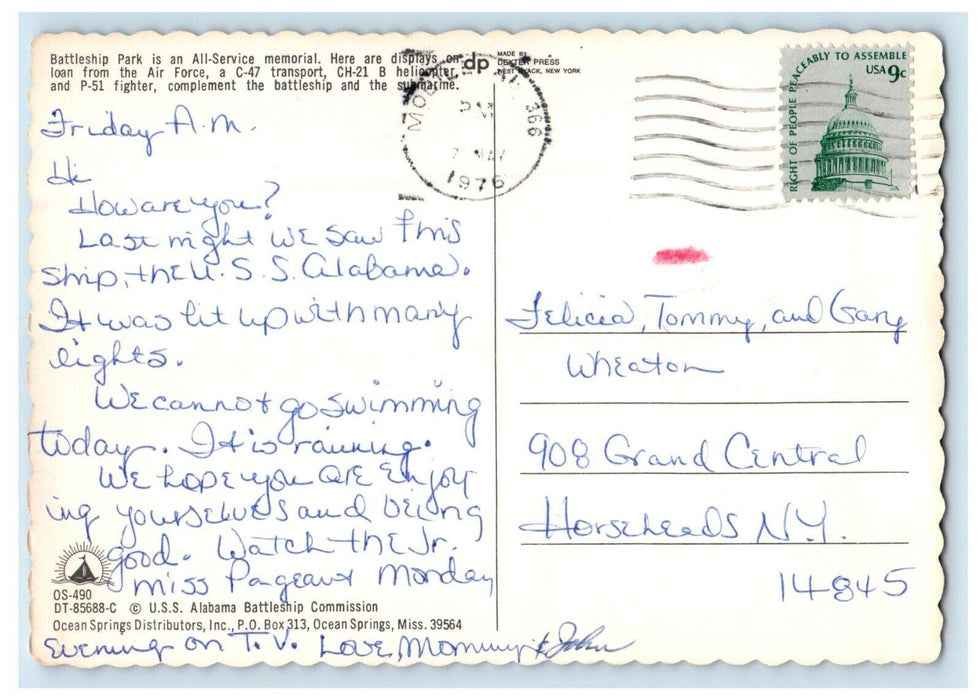 Battleship Park is an All-Service memorial. Here are displays on
loan from the Air Force, a C-47 transport, CH-21 B helicopter,
and P-51 fighter, complement the battleship and the submarine.
dp
MADE BY
DEXTER PRESS
WEST NYACK, NEW YORK
MOBILE
366
PM
7 MAY
1976
RIGHT OF PEOPLE PEACEABLY TO ASSEMBLE
USA 9c
Friday A.M.
Hi
How are you?
Last night we saw this
ship, the U.S.S. Alabama.
It was lit up with many
lights.
We cannot go swimming
today. It is raining.
We hope you are enjoy
ing yourselves and being
good. Watch the Jr.
Miss Pageant Monday
OS-490
DT-85688-C © U.S.S. Alabama Battleship Commission
Ocean Springs Distributors, Inc., P.O. Box 313, Ocean Springs, Miss. 39564
evening on T.V. Love, Mommy & John
Felicia, Tommy, and Gary
Wheaton
908 Grand Central
Horseheads N.Y.
14845